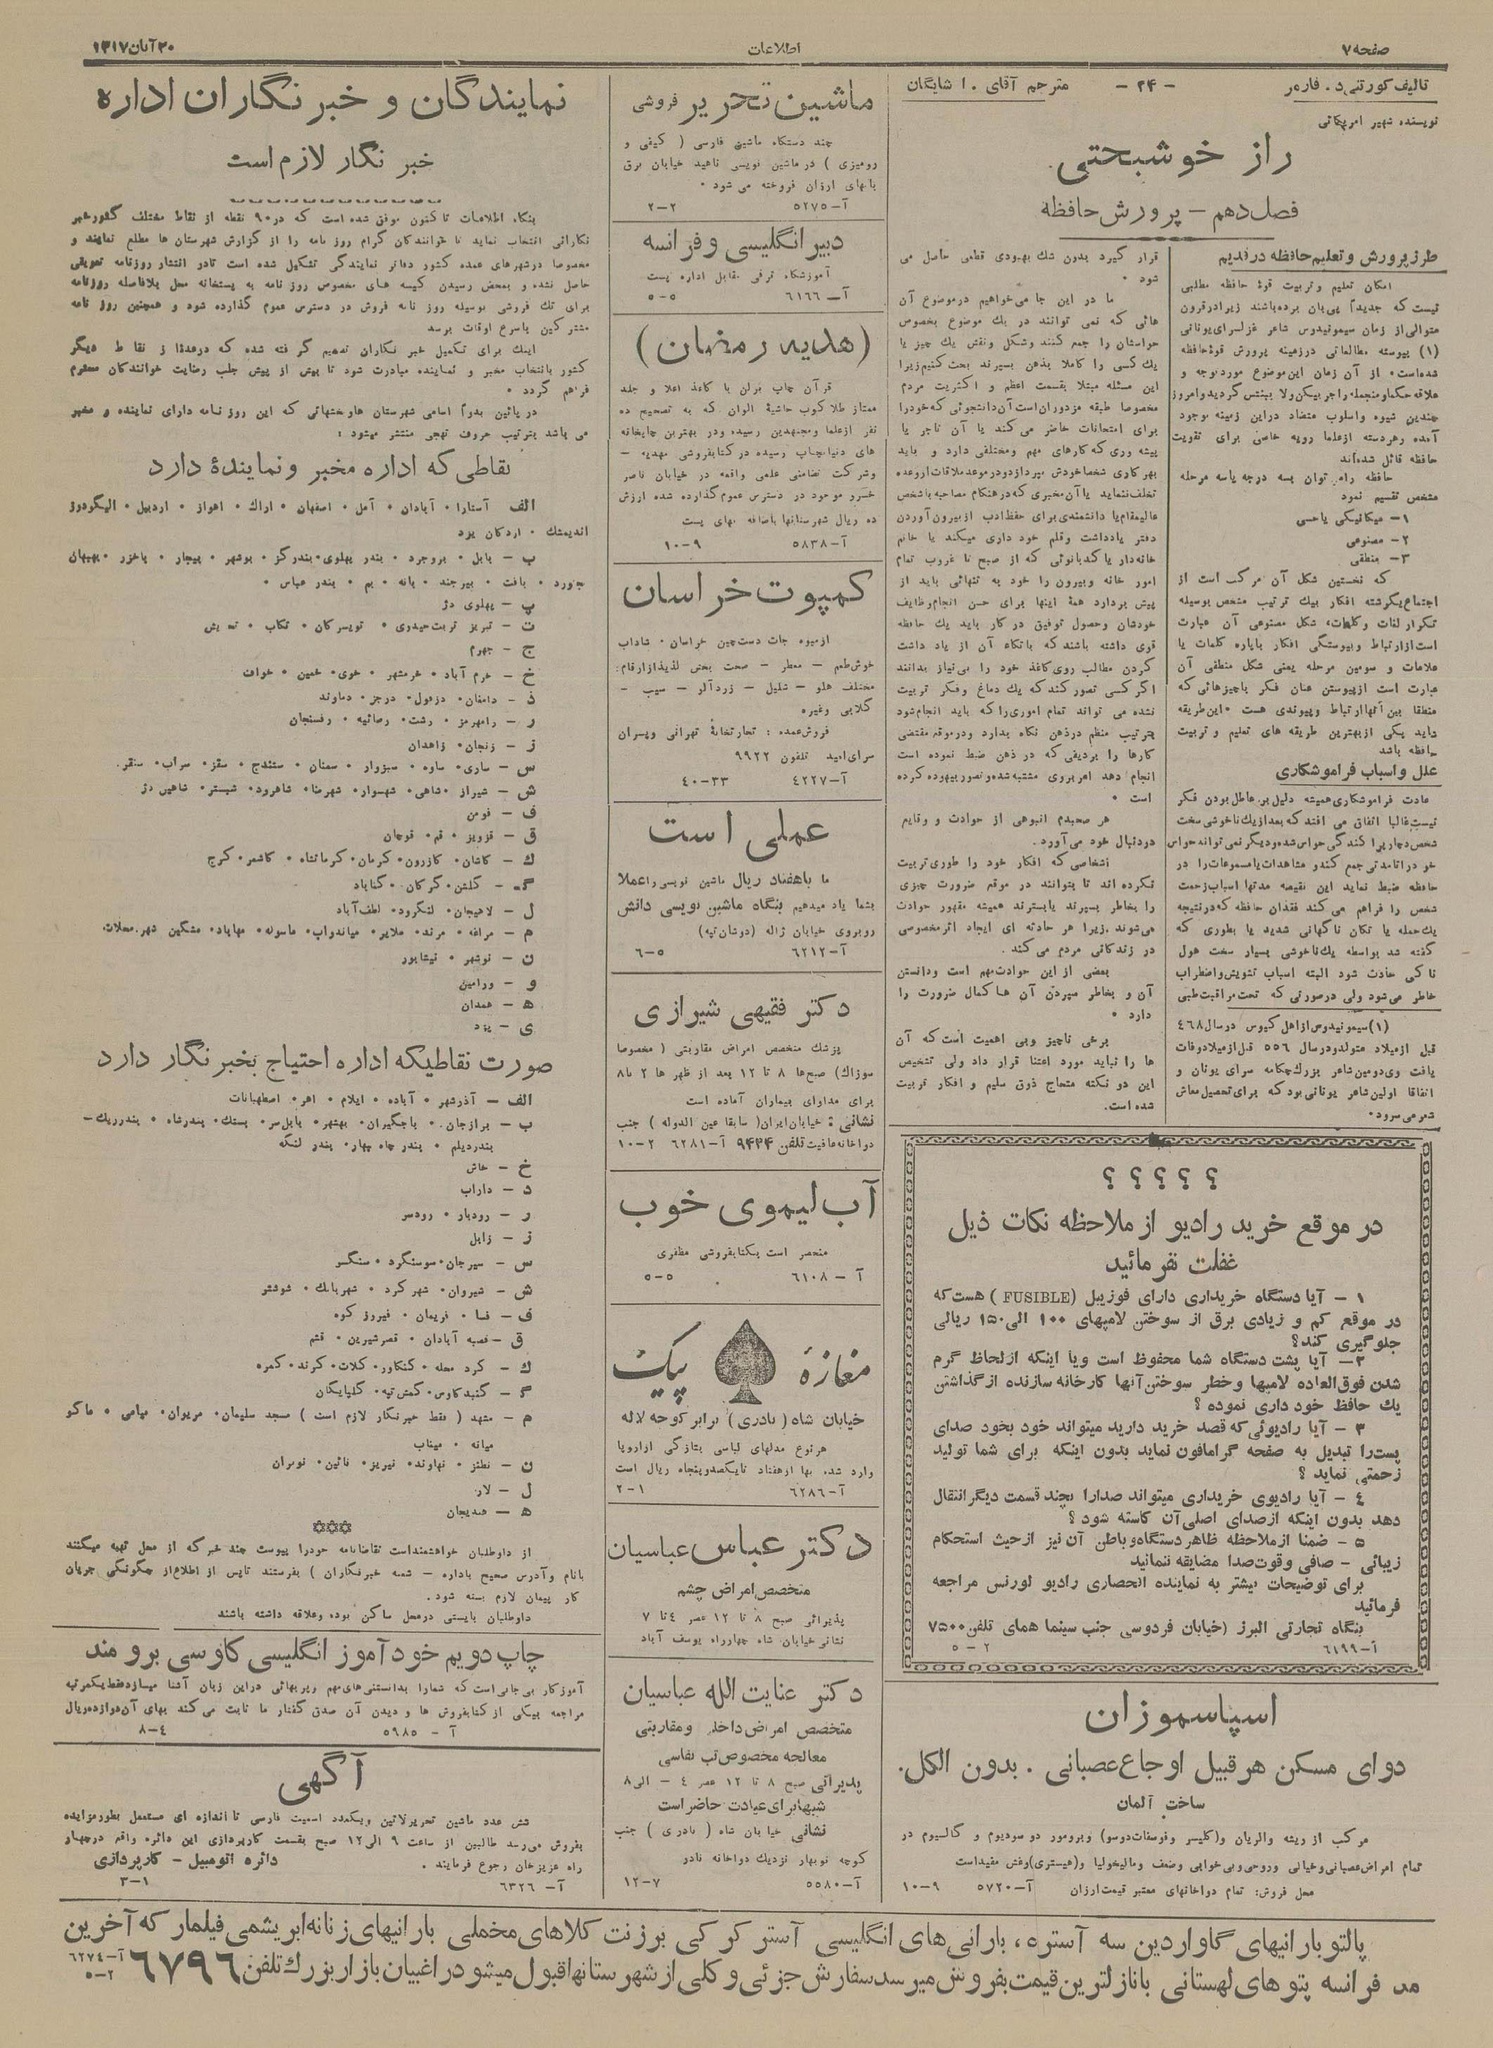 صفحه ۷
اطلاعات
۲۰ آبان ۱۳۱۷
تالیف کورتنی د. فارمر
-۲۴-
مترجم آقای . ا شایگان
نویسنده شهیر امریکائی
راز خوشبختی
فصل دهم - پرورش حافظه
طرز پرورش و تعلیم حافظه در قدیم
امکان تعلیم و تربیت قوهٔ حافظه مطلبی
نیست که جدیداً پی بآن برده باشند زیرا در قرون
متوالی از زمان سیمونیدوس شاعر غزلسرای یونانی
(۱) پیوسته مطالعاتی در زمینه پرورش قوهٔ حافظه
شده است. از آن زمان این موضوع مورد توجه و
علاقه حکما و منجمله راجر بیکن و لایبنتس گردید و امروز
چندین شیوه و اسلوب متضاد در این زمینه بوجود
آمده و هر دسته از علما رویه خاصی برای تقویت
حافظه قائل شده‌اند
حافظه را می توان بسه درجه یا سه مرحله
مشخص تقسیم نمود
۱- میکانیکی یا حسی
۲- مصنوعی
۳- منطقی
که نخستین شکل آن مرکب است از
اجتماع یکرشته افکار بیك ترتیب مشخص بوسیله
تکرار لغات و کلمات، شکل مصنوعی آن عبارت
است از ارتباط و پیوستگی افکار با پاره کلمات یا
علامات و سومین مرحله یعنی شکل منطقی آن
عبارت است از پیوستن عنان فکر باچیزهائی که
منطقا بین آنها ارتباط و پیوندی هست . این طریقه
باید یکی از بهترین طریقه های تعلیم و تربیت
حافظه باشد
علل و اسباب فراموشکاری
عادت فراموشکاری همیشه دلیل بر عاطل بودن فکر
نیست غالبا اتفاق می افتد که بعد از یك ناخوشی سخت
شخص دچار پراکندگی حواس شده و دیگر نمی تواند حواس
خود را تا مدتی جمع کند و مشاهدات یا مسموعات را در
حافظه ضبط نماید این نقیصه مدتها اسباب زحمت
شخص را فراهم می کند فقدان حافظه که در نتیجه
یك حمله یا تکان ناگهانی شدید یا بطوری که
گفته شد بواسطه یك ناخوشی بسیار سخت هول
ناکی حادث شود البته اسباب تشویش و اضطراب
خاطر می شود ولی در صورتی که تحت مراقبت طبی
(۱) سیمونیدوس از اهل کیوس در سال ۴۶۸
قبل از میلاد متولد و در سال ۵۵۶ قبل از میلاد وفات
یافت وی دومین شاعر بزرگ چکامه سرای یونان و
اتفاقا اولین شاعر یونانی بود که برای تحصیل معاش
شعر می سرود .
قرار گیرد بدون شك بهبودی قطعی حاصل می
شود .
ما در این جا می خواهیم در موضوع آن
هائی که نمی توانند در یك موضوع بخصوص
حواسشان را جمع کنند و شکل و نقش یك چیز یا
یك کسی را کاملا بذهن بسپرند بحث کنیم زیرا
این مسئله مبتلا بقسمت اعظم و اکثریت مردم
مخصوصا طبقه مزدوران است آن دانشجوئی که خود را
برای امتحانات حاضر می کند یا آن تاجر یا
پیشه وری که کارهای مهم و مختلفی دارد و باید
بهر کاری شخصا خودش بپردازد و در موعد ملاقات از وعده
تخلف ننماید یا آن مخبری که در هنگام مصاحبه با شخص
عالیمقام یا دانشمندی برای حفظ ادب از بیرون آوردن
دفتر یادداشت و قلم خود داری میکند یا خانم
خانه دار یا کدبانوئی که از صبح تا غروب تمام
امور خانه و بیرون را خود به تنهائی باید از
پیش بردارد همهٔ اینها برای حسن انجام وظایف
خودشان و حصول توفیق در کار باید یك حافظه
قوی داشته باشند که باتکاء آن از یاد داشت
کردن مطالب روی کاغذ خود را بی نیاز بدانند
اگر کسی تصور کند که یك دماغ و فکر تربیت
نشده می تواند تمام اموری را که باید انجام شود
بترتیب منظم در ذهن نگاه بدارد و در موقع مقتضی
کارها را بردیفی که در ذهن ضبط نموده است
انجام دهد امر بروی مشتبه شده و تصور بیهوده کرده
است .
هر صبحدم انبوهی از حوادث و وقایع
در دنبال خود می آورد.
اشخاصی که افکار خود را طوری تربیت
نکرده اند تا بتوانند در موقع ضرورت چیزی
را بخاطر بسپرند یا بسترند همیشه مقهور حوادث
می شوند. زیرا هر حادثه ای ایجاد اثر مخصوصی
در زندگانی مردم می کند .
بعضی از این حوادث مهم است و دانستن
آن و بخاطر سپردن آن ها کمال ضرورت را
دارد .
برخی ناچیز و بی اهمیت است که آن
ها را نباید مورد اعتنا قرار داد ولی تشخیص
این دو نکته محتاج ذوق سلیم و افکار تربیت
شده است.
؟ ؟ ؟ ؟ ؟
در موقع خرید رادیو از ملاحظه نکات ذیل
غفلت نفرمائید
۱ - آیا دستگاه خریداری دارای فوزیبل (FUSIBLE) هست که
در موقع کم و زیادی برق از سوختن لامپهای ۱۰۰ الی ۱۵۰ ریالی
جلوگیری کند؟
۲- آیا پشت دستگاه شما محفوظ است و یا اینکه از لحاظ گرم
شدن فوق العاده لامپها و خطر سوختن آنها کارخانه سازنده از گذاشتن
یك حافظ خود داری نموده ؟
۳ - آیا رادیوئی که قصد خرید دارید میتواند خود بخود صدای
پست را تبدیل به صفحه گرامافون نماید بدون اینکه برای شما تولید
زحمتی نماید ؟
٤ - آیا رادیوی خریداری میتواند صدا را بچند قسمت دیگر انتقال
دهد بدون اینکه از صدای اصلی آن کاسته شود ؟
۵ - ضمنا از ملاحظه ظاهر دستگاه و باطن آن نیز از حیث استحکام
زیبائی - صافی و قوت صدا مضایقه ننمائید
برای توضیحات بیشتر به نماینده انحصاری رادیو لورنس مراجعه
فرمائید
بنگاه تجارتی البرز (خیابان فردوسی جنب سینما همای تلفن ۷۵۰۰
آ-۶۱۹۹ ۲ - ۵
اسپاسموزان
دوای مسکن هر قبیل اوجاع عصبانی . بدون الکل.
ساخت آلمان
مرکب از ریشه والریان و(کلیسر وفوسفات دوسو) وبرومور دو سودیوم و کالسیوم در
تمام امراض عصبانی وخیالی وروحی و بی خوابی وضعف و مالیخولیا و(هیستری) وغش مفید است
محل فروش: تمام دواخانهای معتبر قیمت ارزان آ-۵۷۲۰ ۹-۱۰
ماشین تحریر فروشی
چند دستگاه ماشین فارسی ( کیفی و
رومیزی ) در ماشین نویسی ناهید خیابان برق
ببهای ارزان فروخته می شود .
آ-۵۲۷۵ ۲-۲
دبیر انگلیسی و فرانسه
آموزشگاه ترقی مقابل اداره پست
آ- ۶۱۶۶ ۵-۵
(هدیه رمضان)
قرآن چاپ برلن با کاغذ اعلا و جلد
ممتاز طلا کوب حاشیهٔ الوان که به تصحیح ده
نفر از علما و مجتهدین رسیده و در بهترین چاپخانه
های دنیا چاپ رسیده در کتابفروشی مهدیه -
و شرکت تضامنی علمی واقعه در خیابان ناصر
خسرو موجود در دسترس عموم گذارده شده ارزش
ده ریال شهرستانها باضافه بهای پست
آ-۵۸۳۸ ۹-۱۰
کمپوت خراسان
از میوه جات دست چین خراسان . شاداب
خوش طعم - معطر - صحت بخش لذیذ از ارقام:
مختلف هلو - شلیل - زردآلو - سیب -
گلابی وغیره
فروش عمده : تجارتخانهٔ تهرانی و پسران
سرای امید تلفون ۹۹۲۲
آ-۴۲۲۷ ۳۳-۴۰
عملی است
ما با هفتاد ریال ماشین نویسی را عملا
بشما یاد میدهیم بنگاه ماشین نویسی دانش
روبروی خیابان ژاله (دوشان تپه)
آ-۶۲۱۲ ۵-۶
دکتر فقیهی شیرازی
پزشك متخصص امراض مقاربتی ( مخصوصا
سوزاك) صبح ها ۸ تا ۱۲ بعد از ظهر ها ۲ تا ۸
برای مداوای بیماران آماده است
نشانی : خیابان ایران ( سابقا عین الدوله ) جنب
دواخانه عافیت تلفن ۹۴۲۴ آ-۶۲۸۱ ۲-۱۰
آب لیموی خوب
منحصر است بکتابفروشی مظفری
آ - ۶۱۰۸ ۵-۵
مغازهٔ پیك
خیابان شاه ( نادری ) برابر کوچه لاله
هر نوع مدلهای لباسی بتازگی از اروپا
وارد شده بها از هفتاد تا یکصد و پنجاه ریال است
آ-۶۲۸۶ ۱-۲
دکتر عباس عباسیان
متخصص امراض چشم
پذیرائی صبح ۸ تا ۱۲ عصر ٤ تا ۷
نشانی خیابان شاه چهارراه یوسف آباد
دکتر عنایت الله عباسیان
متخصص امراض داخلی و مقاربتی
معالجه مخصوص تب نفاسی
پذیرائی صبح ۸ تا ۱۲ عصر ٤ - الی ۸
شبها برای عیادت حاضر است
نشانی خیابان شاه ( نادری ) جنب
کوچه نوبهار نزدیك دواخانه نادر
آ-۵۵۸۰ ۷-۱۲
نمایندگان و خبرنگاران اداره
خبرنگار لازم است
بنگاه اطلاعات تا کنون موفق شده است که در ۹۰ نقطه از نقاط مختلف کشور خبر
نگارانی انتخاب نماید تا خوانندگان گرام روز نامه را از گزارش شهرستان ها مطلع نمایند و
مخصوصا در شهرهای عمده کشور دفاتر نمایندگی تشکیل شده است تا در انتشار روزنامه تعویقی
حاصل نشده و بمحض رسیدن کیسه های مخصوص روز نامه به پستخانه محل بلافاصله روزنامه
برای تك فروشی بوسیله روز نامه فروش در دسترس عموم گذارده شود و همچنین روز نامه
مشترکین باسرع اوقات برسد
اینك برای تکمیل خبر نگاران تصمیم گرفته شده که در عدهٔ از نقاط دیگر
کشور بانتخاب مخبر و نماینده مبادرت شود تا بیش از پیش جلب رضایت خوانندگان محترم
فراهم گردد .
در پائین بدواً اسامی شهرستان ها و بخشهائی که این روز نامه دارای نماینده و مخبر
می باشد بترتیب حروف تهجی منتشر میشود :
نقاطی که اداره مخبر و نمایندهٔ دارد
الف آستارا . آبادان . آمل . اصفهان . اراك . اهواز . اردبیل . الیگودرز
اندیمشك . اردکان یزد
ب - بابل . بروجرد . بندر پهلوی . بندرگز . بوشهر . بیجار . باخزر . بهبهان
بجنورد . بافت . بیرجند . بانه . بم . بندر عباس .
پ - پهلوی دژ
ت - تبریز تربت حیدری . تویسرکان . تکاب . تجریش
ج - جهرم
خ - خرم آباد . خرمشهر . خوی . خمین . خواف
د - دامغان . دزفول . درجز . دماوند
ر - رامهرمز . رشت . رضائیه . رفسنجان
ز - زنجان . زاهدان
س - ساری . ساوه . سبزوار . سمنان . سنندج . سقز . سراب . سنقر.
ش - شیراز . شاهی . شهسوار . شهرضا . شاهرود . شبستر . شاهین دژ
ف - فومن
ق - قزوین . قم . قوچان
ك - کاشان . کازرون . کرمان . کرمانشاه . کاشمر . کرج
گ - گلشن . گرگان . گناباد
ل - لاهیجان . لنگرود . لطف آباد
م - مراغه . مرند . ملایر . میاندواب . ماسوله . مهاباد . مشگین شهر . محلات.
ن - نوشهر . نیشابور
و - ورامین
ه - همدان
ی - یزد
صورت نقاطیکه اداره احتیاج بخبر نگار دارد
الف - آذرشهر . آباده . ایلام . اهر . اصطهبانات
ب - برازجان . باجگیران . بهشهر . بابلسر . بستك . بندرشاه . بندرریك -
بندردیلم . بندر چاه بهار . بندر لنگه
خ - خاش
د - داراب
ر - رودبار . رودسر
ز - زابل
س - سیرجان . سوسنگرد . سنگسر
ش - شیروان . شهرکرد . شهربابك . شوشتر
ف - فسا . فریمان . فیروز کوه
ق - قصبه آبادان . قصرشیرین . قشم
ك - کرد محله . کنگاور . کلات . کرند . کمره
گ - گنبد کاوس . گمش تپه . گلپایگان
م - مشهد ( فقط خبرنگار لازم است ) مسجد سلیمان . مریوان . میامی . ماکو
میانه . میناب
ن - نطنز . نهاوند . نیریز . نائین . نوسران
ل - لار
ه - هندیجان
از داوطلبان خواهشمند است تقاضانامه خود را پیوست چند خبر که از محل تهیه میکنند
بانام و آدرس صحیح باداره - شعبه خبرنگاران ) بفرستند تا پس از اطلاع از چگونگی جریان
کار پیمان لازم بسته شود .
داوطلبان بایستی در محل ساکن بوده و علاقه داشته باشند
چاپ دویم خودآموز انگلیسی کاوسی برومند
آموزگار بی جانی است که شما را بدانستنی های مهم و پر بهائی در این زبان آشنا میسازد فقط یکمرتبه
مراجعه بیکی از کتابفروش ها و دیدن آن صدق گفتار ما ثابت می کند بهای آن دوازده ریال
آ - ۵۹۸۵ ۴-۸
آگهی
شش عدد ماشین تحریر لاتین و یکعدد اسمیت فارسی تا اندازه ای مستعمل بطور مزایده
بفروش می رسد طالبین از ساعت ۹ الی ۱۲ صبح بقسمت کارپردازی این دائره واقع در چهار
راه عزیزخان رجوع فرمایند . دائره اتومبیل - کارپردازی
آ- ۶۳۲۶ ۱-۳
پالتو بارانیهای گاواردین سه آستره، بارانی های انگلیسی آستر کرکی برزنت کلاهای مخملی بارانیهای زنانه ابریشمی فیلمار که آخرین
مد فرانسه پتوهای لهستانی با نازلترین قیمت بفروش میرسد سفارش جزئی و کلی از شهرستانها قبول میشود راغبیان بازار بزرگ تلفن ۶۷۹۶ آ-۶۲۷۴ ۲-۵